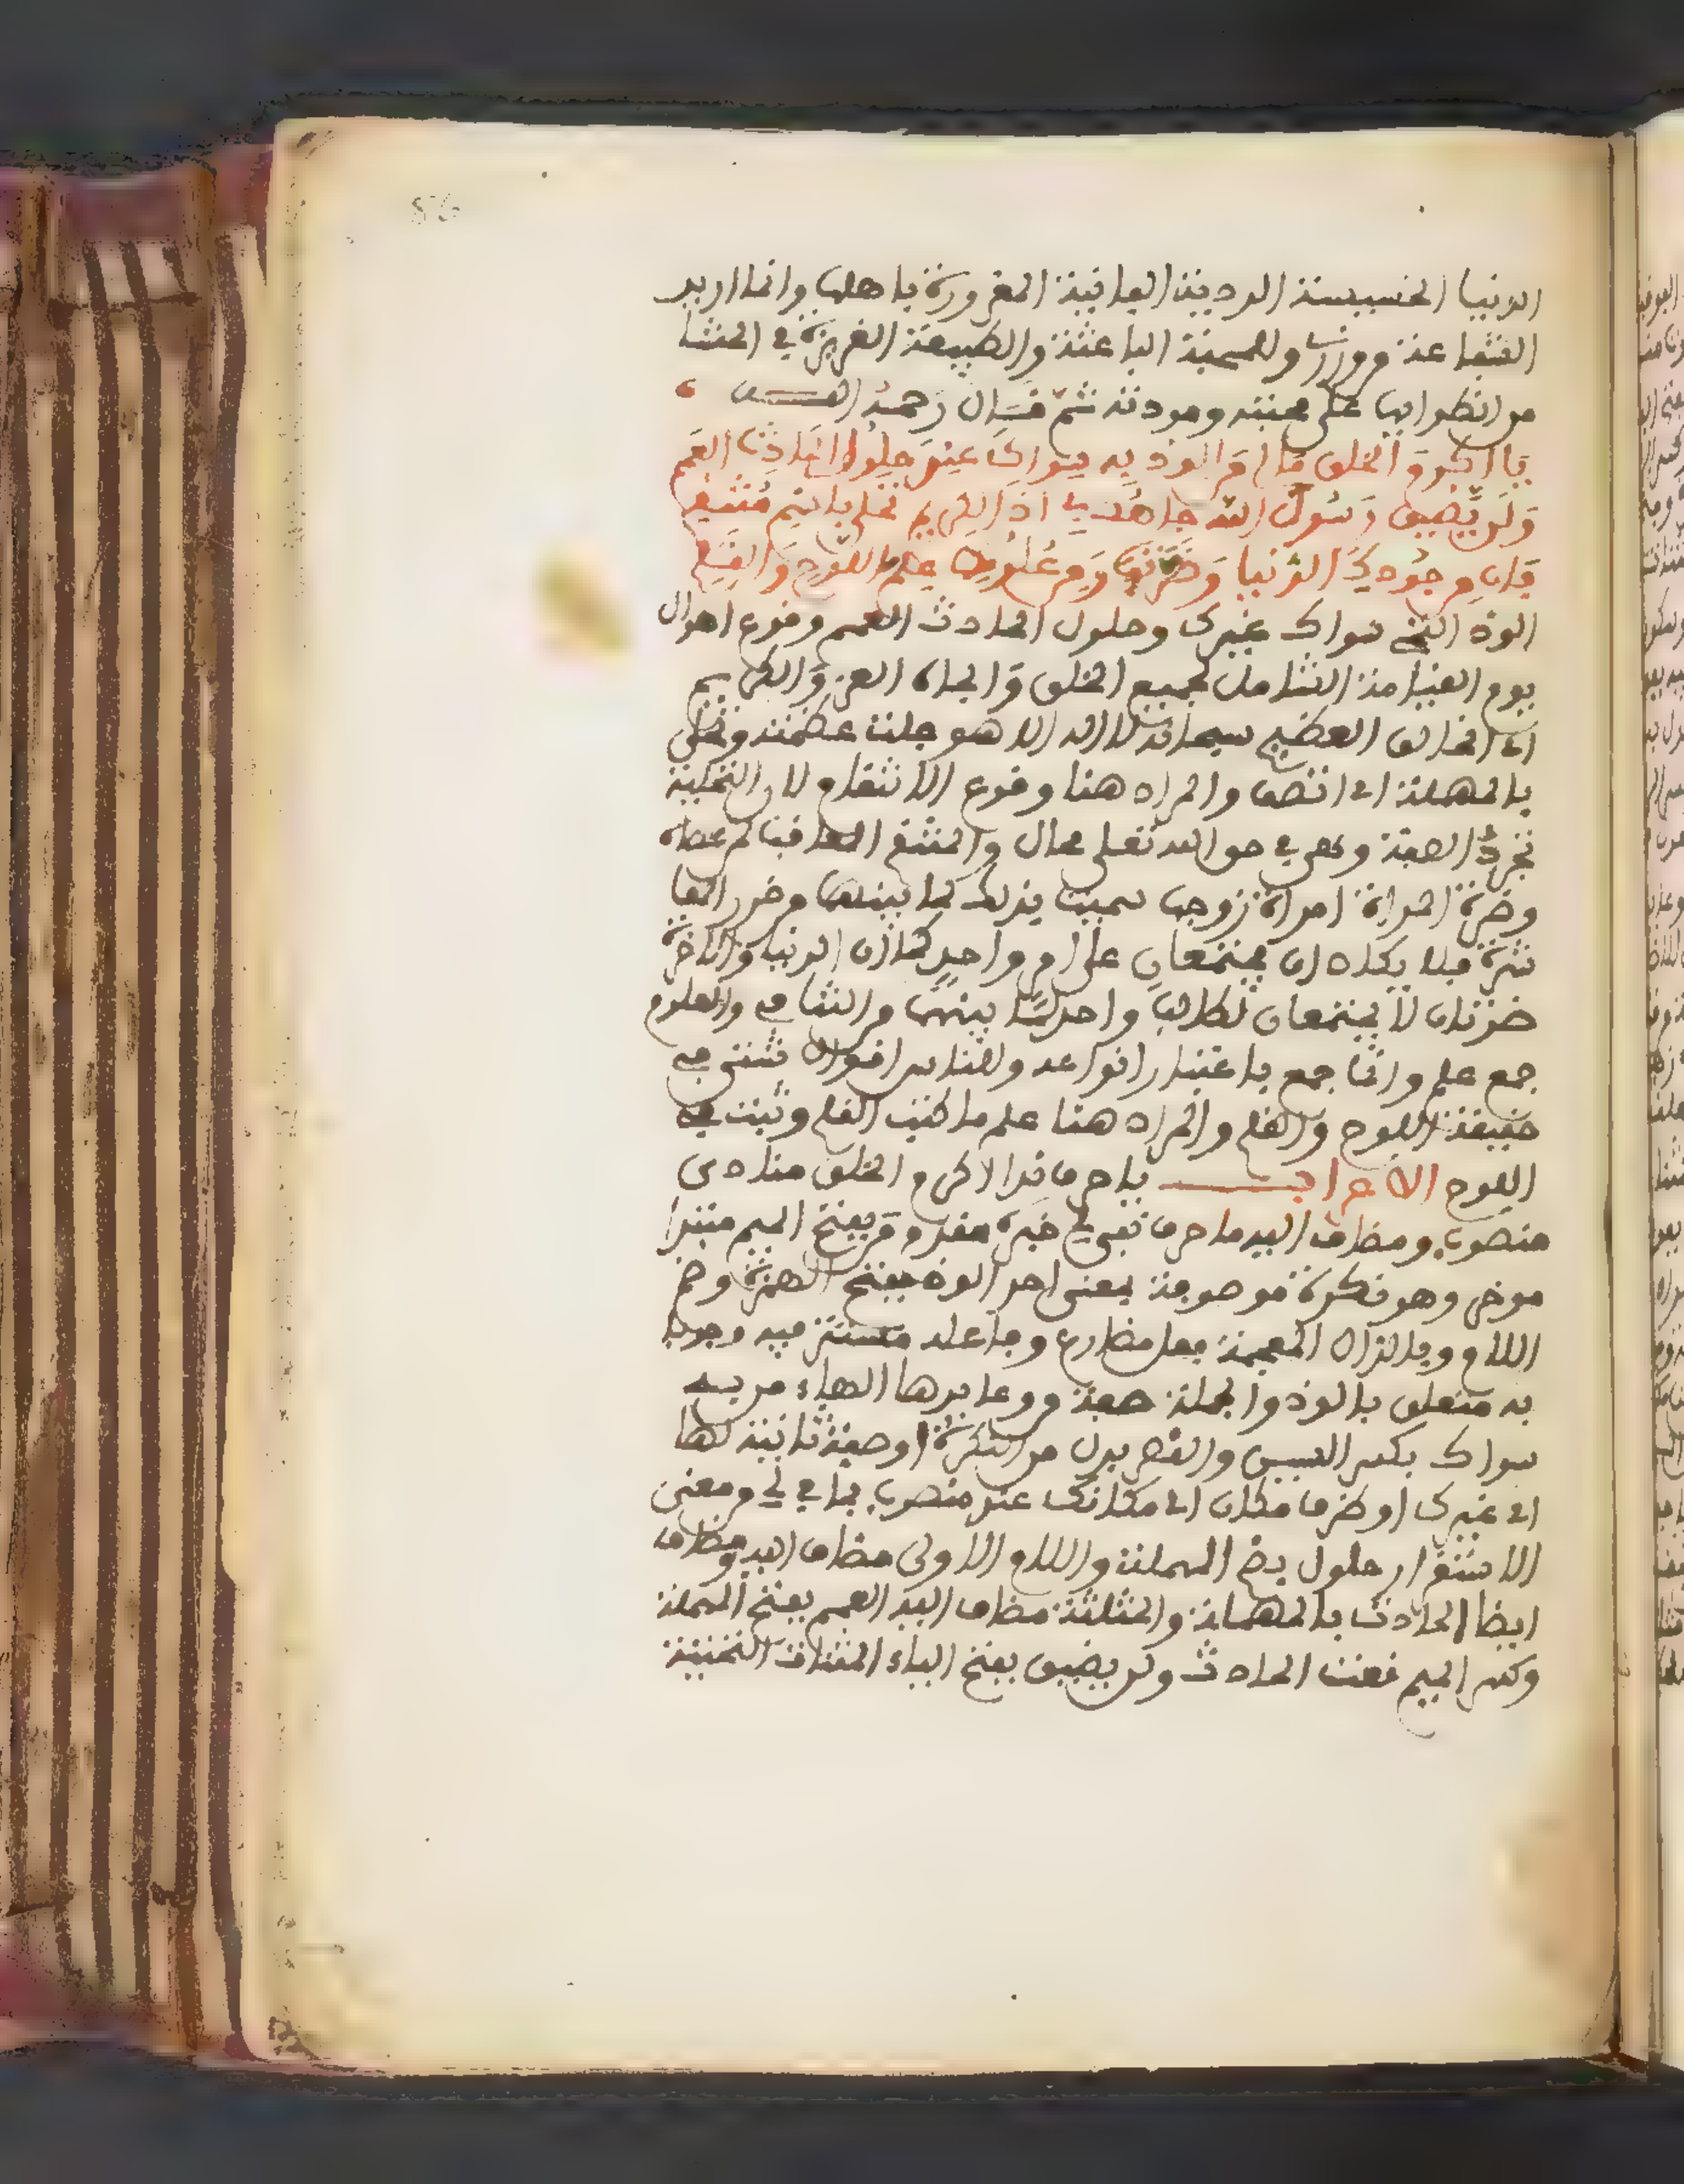 86
الدنيا الخسيسة الردية الفانية المغرورة باهلها وانما اريد
الشفاعة من والمحبة الباعثة والطبيعة الغريزة في المنشا
من انطوايها على محبته ومودته ثم قال رحمه الله
يَا اكرم الخلق مالي من الوذ به سواك عند حلول الحادث العمم
وَلَن يضيق رسول الله جاهك بي اذا الكريم تحلى باسم منتقم
فان من جودك الدنيا وضرتها ومن علومك علم اللوح والقلم
الوذ التجي سواك غيرك وحلول الحادث العمم وقوع اهوال
يوم القيامة الشامل لجميع الخلق والجاه العز والكريم
اي الخالق العظيم سبحانه لا اله الا هو جلت عظمته وتحلى
بالمهملة اي اتصف والمراد هنا وقوع الانتقام لان التحلية
تجدد الصفة وهي في حق الله تعلى محال والمنتقم المعاقب لمن عصاه
وضرة المراة امراة زوجها سميت بذلك لما بينهما من ضرر المعا
شرة فلا يكاد ان يجتمعان على امر واحد كما ان الدنيا والاخرة
ضرتان لا يجتمعان لطالب واحد لما بينهما من التنافي والعلوم
جمع علم وانما جمع باعتبار انواعه وللناس اقوال شتى في
حقيقة اللوح والقلم والمراد هنا علم ما كتب القلم وثبت في
اللوح الاعراب يا حرف ندا اكرم الخلق منادى
منصوب ومضاف اليه ما حرف نفي لي خبر مقدم من بفتح الميم مبتدا
موخر وهو نكرة موصوفة بمعنى احد الوذ بفتح الهمزة وضم
اللام وبالذال المعجمة فعل مضارع وفاعله مستتر فيه وجوبا
به متعلق بالوذ والجملة صفة من وعايدها الهاء من به
سواك بكسر السين والقصر بدل من النكرة او صفة ثانية لها
اي غيرك او ظرف مكان اي مكانك عند منصوب بما في لي من معنى
الاستقرار حلول بضم المهملة واللام الاولى مضاف اليه ومضاف
ايضا الحادث بالمهملة والمثلثة مضاف اليه العمم بفتح المهملة
وكسر الميم نعت الحادث ولن يضيق بفتح الياء المثناة التحتية